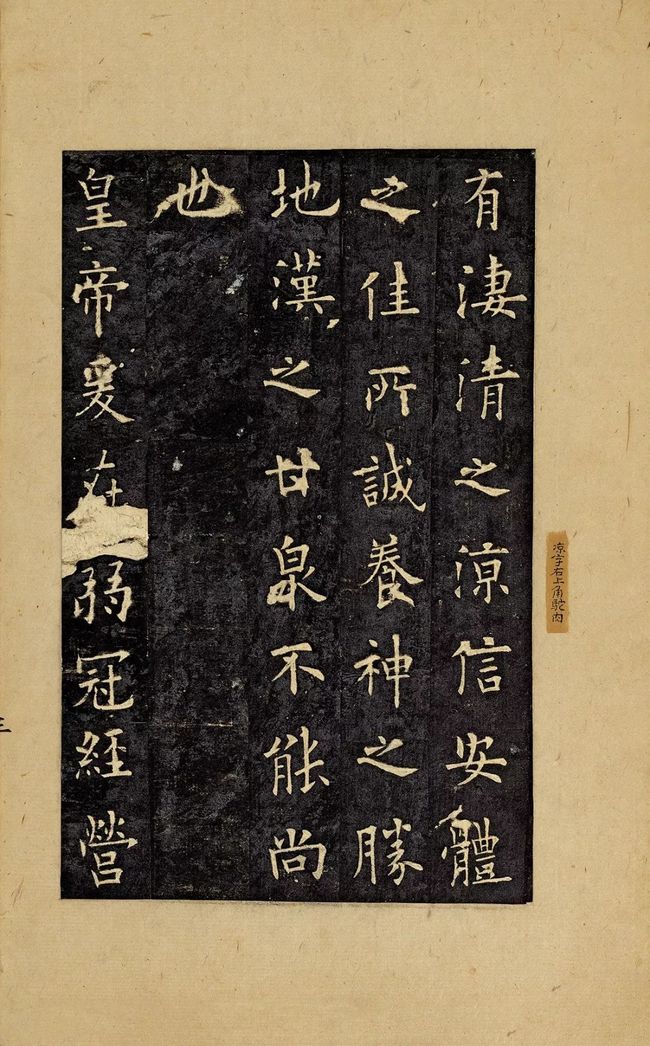 有淒清之涼信安體
之佳所誠養神之勝
地漢之甘泉不能尚
也
皇帝爰在弱冠經營
涼字右上角
三